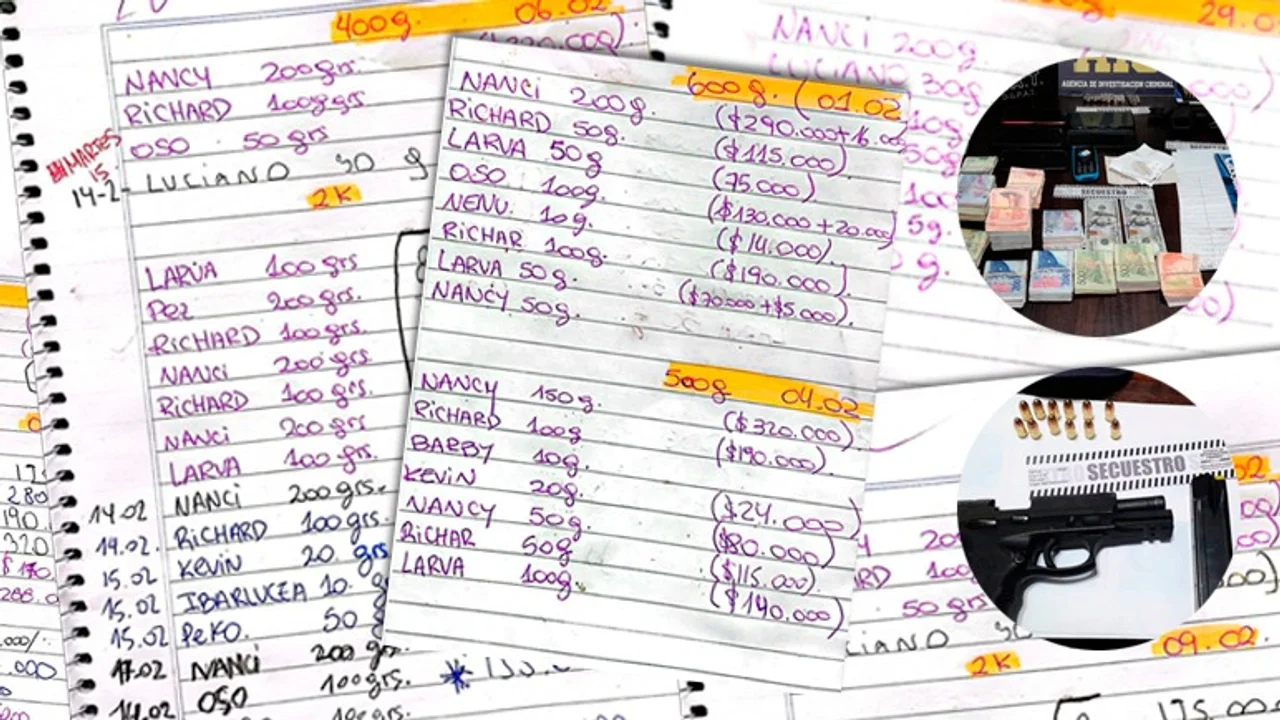 400g. 06.02
NANCY 200grs.
RICHARD 100grs
OSO 50 grs
MARTES
15
14-2- LUCIANO 30 g
2K
LARVA 100grs
PEZ 200grs.
RICHARD 100grs.
NANCI 200grs.
RICHARD 100grs.
NANCI 200grs.
LARVA 100grs.
14.02 NANCI 200grs.
19.02. RICHARD 100grs.
15.02 KEVIN 20. grs
15.02 IBARLUCEA 10. g
15.02 PEKO. 50 g
17.02 NANCI 200 grs.
14.02 OSO 100grs.
600g. (01.02
NANCI 200g. ($290.000+16.000
RICHARD 50g. ($115.000)
LARVA 50g (75.000)
OSO 100g. ($130.000+20.000)
NENU. 10g. ($14.000).
RICHAR 100g. ($190.000).
LARVA 50g. ($70.000+$5.000).
NANCY 50g.
500g 04.02
NANCY 150g. ($320.000)
RICHARD 100g ($190.000).
BARBY 10g.
KEVIN 20g. ($24.000)
NANCY 50g. ($80.000)
RICHAR 50g ($115.000)
LARVA 100g. ($140.000)
29.0
NANCI 200g
LUCIANO 30g
AGENCIA DE INVESTIGACIÓN CRIMINAL
SECUESTRO
SECUESTRO
50 grs
2K 09.02.
175.000
280
190
320